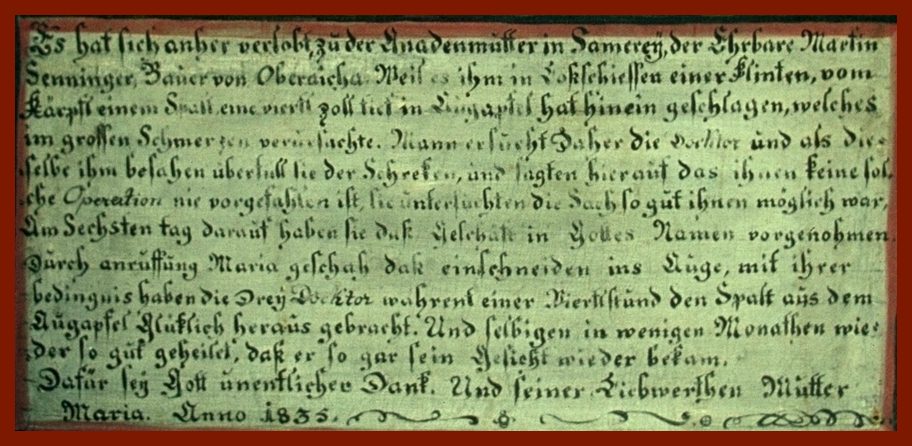 Es hat sich anher verlobt, zu der Gnadenmutter in Samerey, der Ehrbare Martin
Senninger, Bauer von Oberaicha. Weil es ihm in Loßschiessen einer Flinten, vom
Käpsl einem Spalt eine viertl zoll tief in Augapfel hat hinein geschlagen, welches
im grossen Schmerzen verursachte. Mann ersucht Daher die Docktor und als die=
selbe ihm besahen überfull sie der Schreken, und sagten hierauf das ihnen keine sol=
che Operation nie vorgefahlen ist, sie untersuchten die Sach so gut ihnen möglich war,
Am Sechsten tag darauf haben sie daß Geschäft in Gottes Namen vorgenohmen.
Durch anruffung Maria geschah daß einschneiden ins Auge, mit ihrer
bedingnis haben die Drey Docktor während einer Viertlstund den Spalt aus dem
Augapfel Glüklich heraus gebracht. Und selbigen in wenigen Monathen wie=
der so gut geheilet, daß er so gar sein Gesicht wieder bekam.
Dafür sey Gott unentlicher Dank. Und seiner Liebwerthen Mutter
Maria. Anno 1835.